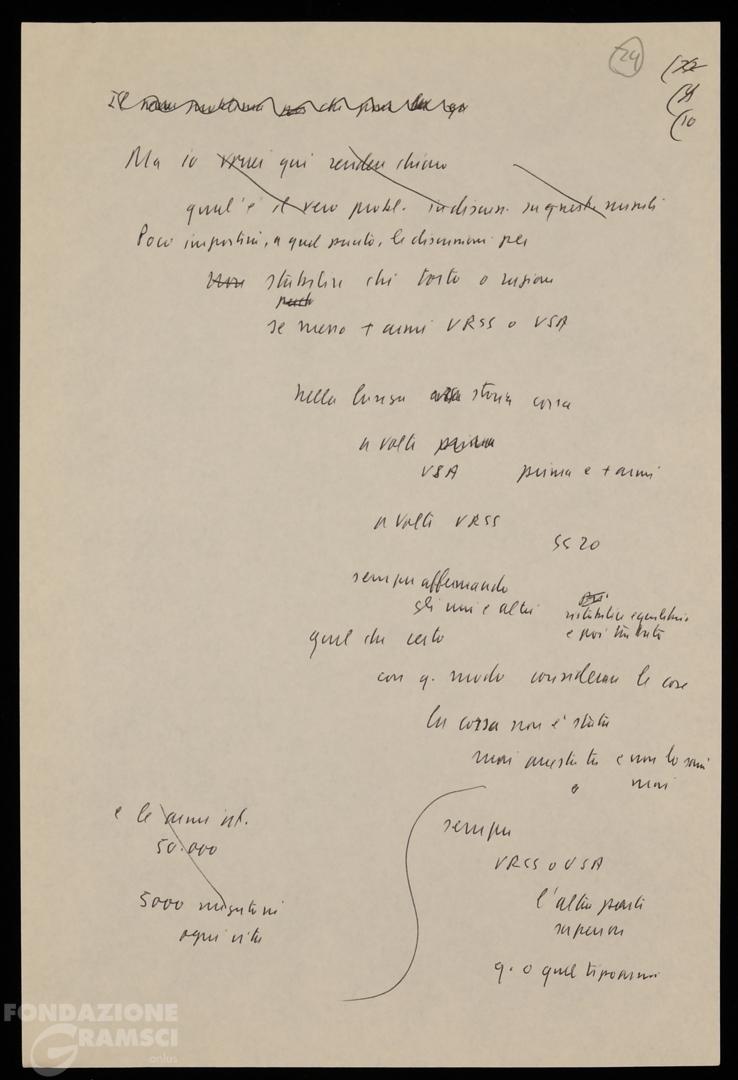 24
(22
(10
Il
Ma io vorrei qui rendere chiaro
qual'è il vero probl. in discuss. su questi missili
Poco importini, a quel punto, le discussioni per
stabilire chi torto o ragione
se meno + armi URSS o USA
nella lunga storia corsa
a volte
USA prima e + armi
a volte URSS
SS 20
sempre affermando
gli uni e altri
ristabilire equilibrio
e poi trattato
quel che certo
con q. modo considerare le cose
la corsa non è stata
mai arrestata e non lo sarà
mai
e le armi
50.000
5000
ogni
sempre
URSS o USA
l'altra parte
superiore
q. o quel tipo armi
FONDAZIONE
GRAMSCI
onlus